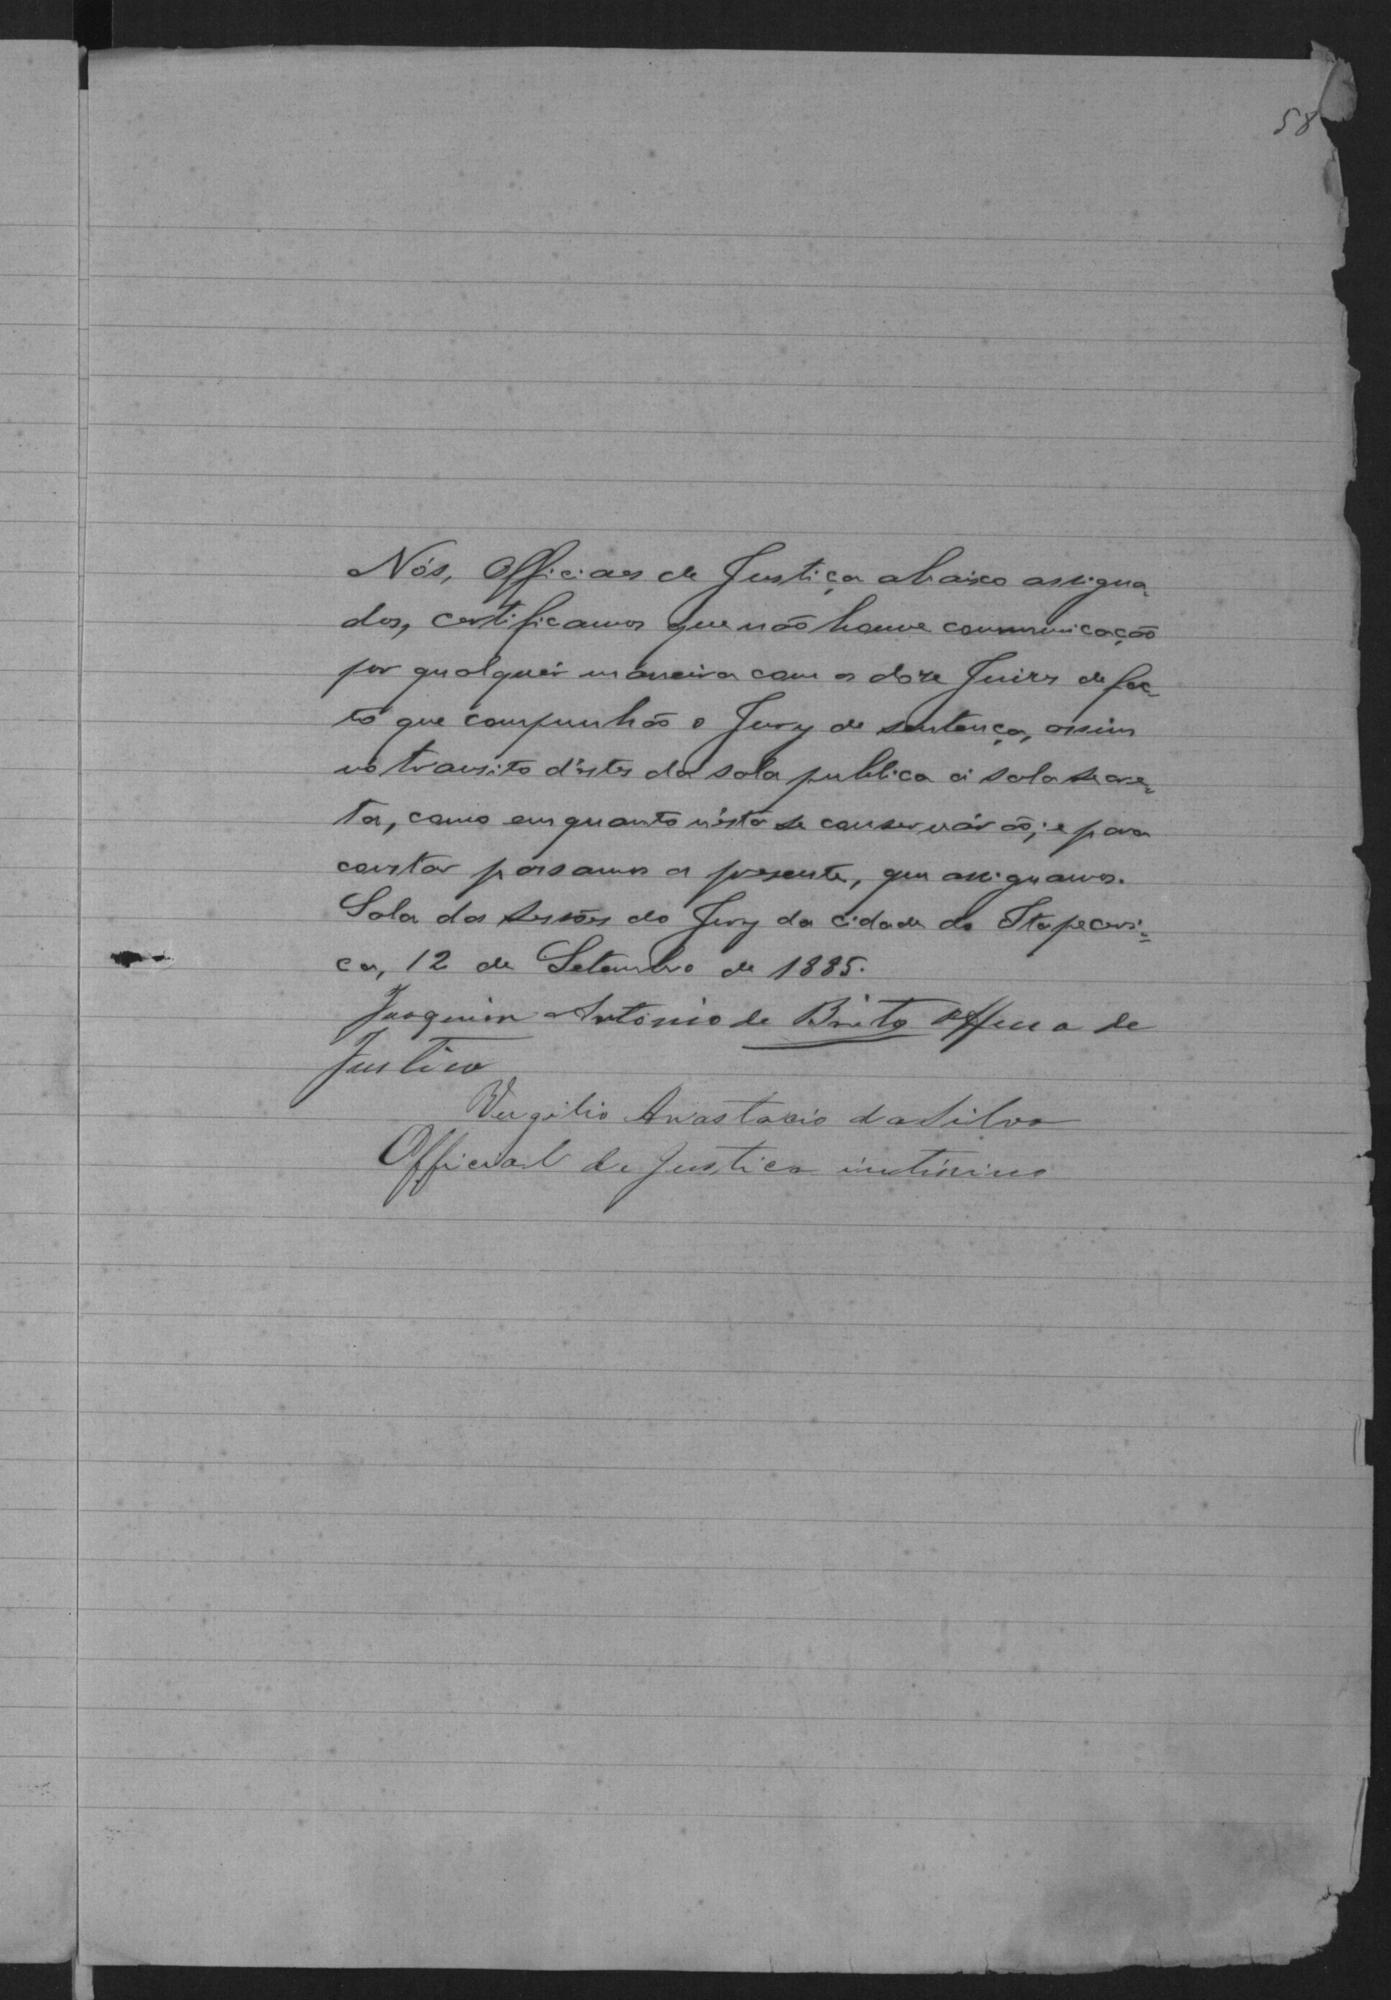 58
Nós, Officiaes de Justiça abaixo assigna-
dos, certificamos que não houve communicação
por qualquér maneira com os doze Juizes de fac-
to que compunhão o Jury de sentença, assim
no transito d'estes da sala publica á sala secre-
ta, como em quanto n'esta se conservárão; e para
constar passamos a presente, que assignamos.
Sala das Sessões do Jury da cidade do Itapeceri-
ca, 12 de Setembro de 1885.
Joaquim Antonio de Brito de
Justica
Vergilio Anastacio da Silva
Official de Justica